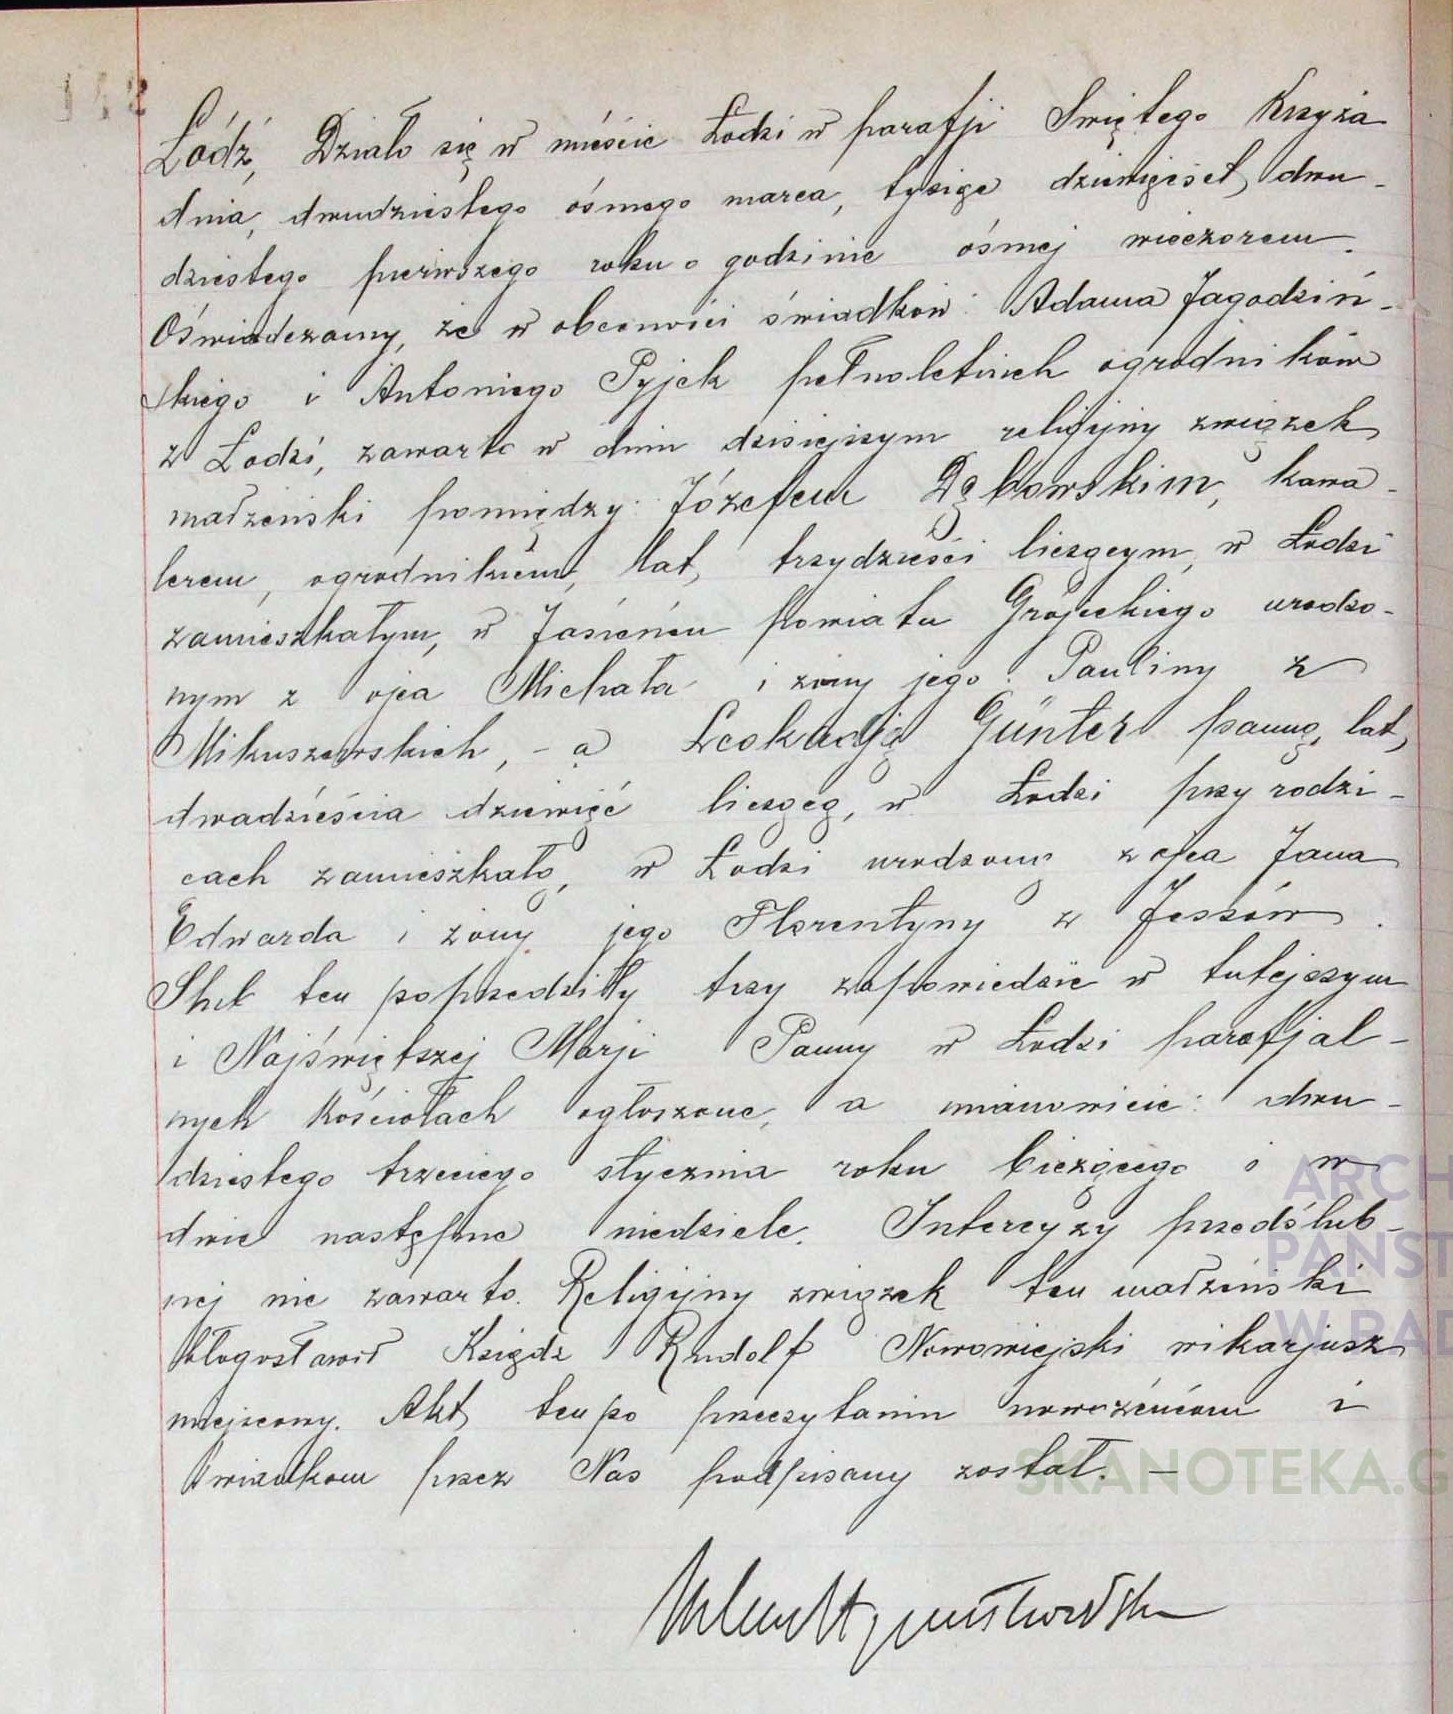 Łódź, Działo się w mieście Łodzi w parafji Świętego Krzyża
dnia, dwudziestego ósmego marca, tysiąc dziewięćset dwu-
dziestego pierwszego roku o godzinie ósmej wieczorem.
Oświadczamy, że w obecności świadków: Adama Jagodziń-
skiego i Antoniego Pyjek pełnoletnich ogrodników
z Łodzi, zawarto w dniu dzisiejszym religijny związek
małżeński pomiędzy: Józefem Dębowskim, kawa-
lerem, ogrodnikiem, lat, trzydzieści liczącym, w Łodzi
zamieszkałym, w Jasieńcu powiatu Grójeckiego urodzo-
nym z ojca Michała i żony jego Pauliny z
Mikuszewskich, - a Leokadją Günter panną, lat,
dwadzieścia dziewięć liczącą, w Łodzi przy rodzi-
cach zamieszkałą, w Łodzi urodzoną z ojca Jana
Edwarda i żony jego Florentyny z Jessów.
Ślub ten poprzedziły trzy zapowiedzie w tutejszym
i Najświętszej Marji Panny w Łodzi parafjal-
nych Kościołach ogłoszone, a mianowicie: dwu-
dziestego trzeciego stycznia roku bieżącego i w
dwie następne niedziele. Intercyzy przedślub-
nej nie zawarto. Religijny związek ten małżeński
błogosławił Ksiądz Rudolf Nowowiejski wikarjusz
miejscowy. Akt ten po przeczytaniu nowożeńcom i
świadkom przez Nas podpisany został. —
ARCH
PAŃST
W RAD
SKANOTEKA.G